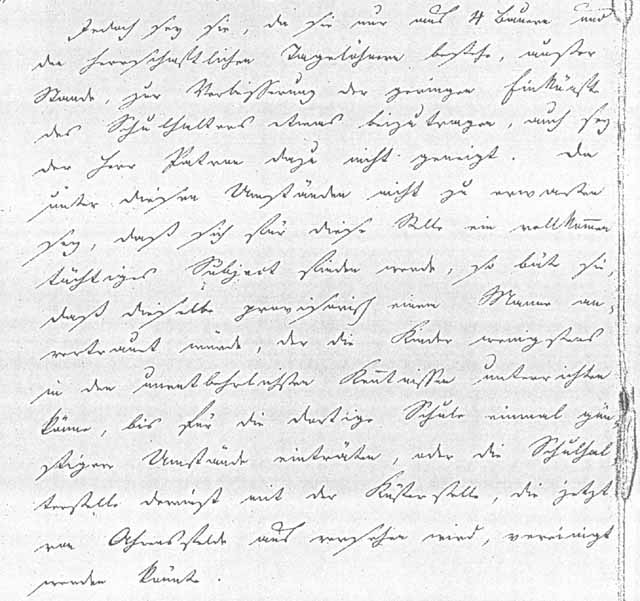 Jedoch sey sie, da sie nur aus 4 Bauern und
den herrschaftlichen Tagelöhnern bestehe, außer
Stande, zur Verbesserung der geringen Einkünfte
des Schulhalters etwas beizutragen, auch sey
der Herr Patron dazu nicht geneigt. Da
unter diesen Umständen nicht zu erwarten
sey, daß sich für diese Stelle ein vollkom̅en
tüchtiges Subject finden werde, so bäte sie,
daß dieselbe provisorisch einem Manne an-
vertraut werde der die Kinder wenigstens
in den unentbehrlichsten Ken̅tnissen unterrichten
kön̅e, bis für die dortige Schule einmal gün-
stigere Umstände einträten, oder die Schulhal
terstelle dereinst mit der Küsterstelle, die jetzt
von Ahrensfelde aus versehen wird, vereinigt
werden kön̅te.